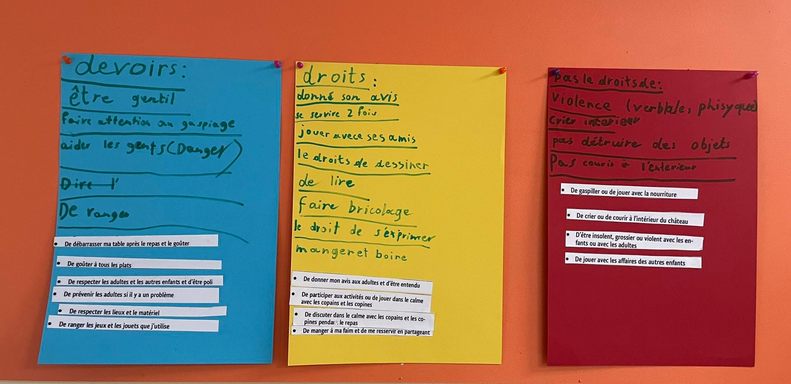 devoirs:
être gentil
Faire attention au gaspiage
aider les gents (Danger)
Dire l'
De ranger
De débarrasser ma table après le repas et le goûter
De goûter à tous les plats
De respecter les adultes et les autres enfants et d'être poli
De prévenir les adultes si il y a un problème
De respecter les lieux et le matériel
De ranger les jeux et les jouets que j'utilise
droits:
donné son avis
se servire 2 fois
jouer avece ses amis
le droits de dessiner
de lire
faire bricolage
le droit de s'éxprimer
manger et boire
De donner mon avis aux adultes et d'être entendu
De participer aux activités ou de jouer dans le calme
avec les copains et les copines
De discuter dans le calme avec les copains et les co-
pines pendant le repas
De manger à ma faim et de me resservir en partageant
pas le droits de:
Violence (verbble, phisyque)
crier interieur
pas détruire des objets
Pas couris à l'interieur
De gaspiller ou de jouer avec la nourriture
De crier ou de courir à l'intérieur du château
D'être insolent, grossier ou violent avec les en-
fants ou avec les adultes
De jouer avec les affaires des autres enfants